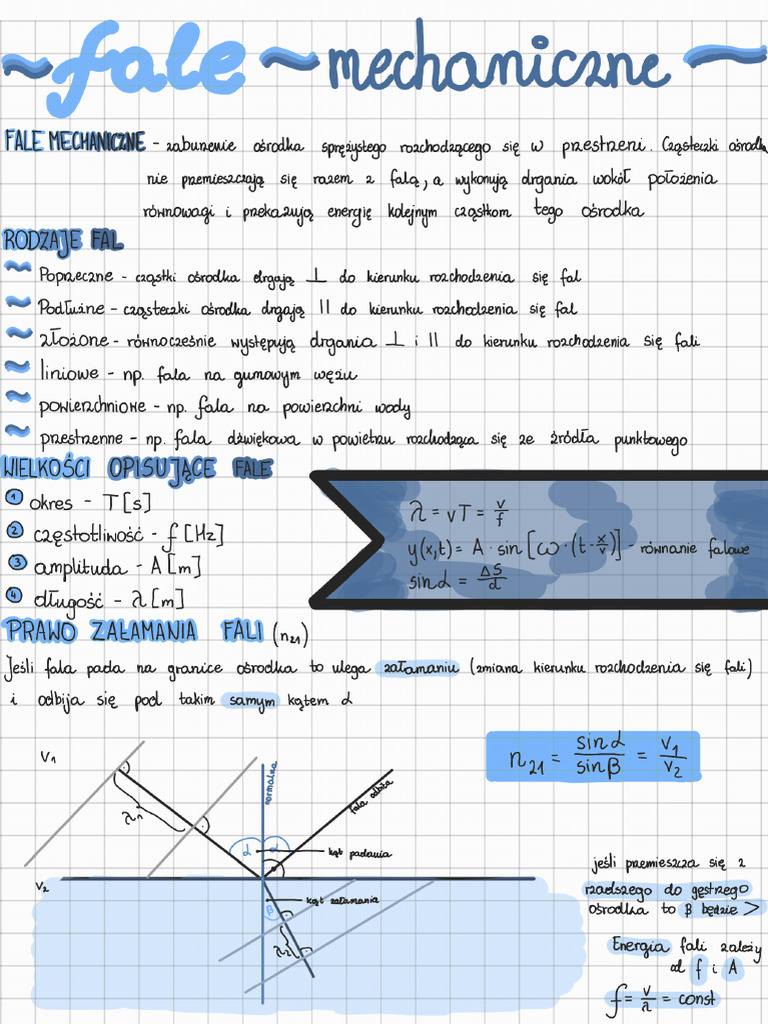 ~ fale ~ mechaniczne ~
FALE MECHANICZNE - zaburzenie ośrodka sprężystego rozchodzącego się w przestrzeni. Cząsteczki ośrodka
nie przemieszczają się razem z falą, a wykonują drgania wokół położenia
równowagi i przekazują energię kolejnym cząstkom tego ośrodka
RODZAJE FAL
~ Poprzeczne - cząstki ośrodka drgają ⊥ do kierunku rozchodzenia się fal
~ Podłużne - cząsteczki ośrodka drgają || do kierunku rozchodzenia się fal
~ złożone - równocześnie występują drgania ⊥ i || do kierunku rozchodzenia się fali
~ liniowe - np. fala na gumowym wężu
~ powierzchniowe - np. fala na powierzchni wody
~ przestrzenne - np. fala dźwiękowa w powietrzu rozchodząca się ze źródła punktowego
WIELKOŚCI OPISUJĄCE FALE
1 okres - T[s]
2 częstotliwość - f[Hz]
3 amplituda - A[m]
4 długość - λ[m]
λ = vT = v/f
y(x,t) = A · sin[ω·(t-x/v)] - równanie falowe
sinα = ΔS/d
PRAWO ZAŁAMANIA FALI (n₂₁)
Jeśli fala pada na granice ośrodka to ulega załamaniu (zmiana kierunku rozchodzenia się fali)
i odbija się pod takim samym kątem α
n₂₁ = sinα/sinβ = v₁/v₂
V₁
λ₁
normalna
fala odbita
α α
kąt padania
V₂
kąt załamania
β
λ₂
jeśli przemieszcza się z
rzadszego do gęstrzego
ośrodka to β będzie >
Energia fali zależy
od f i A
f = v/λ = const